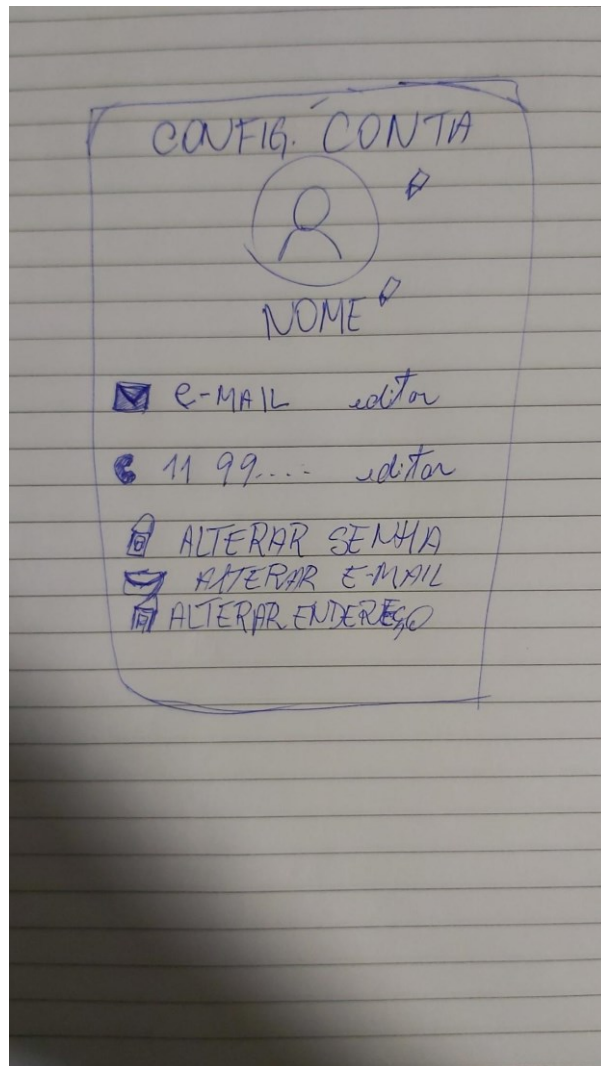 CONFIG. CONTA
NOME
E-MAIL editar
11 99.... editar
ALTERAR SENHA
ALTERAR E-MAIL
ALTERAR ENDEREÇO